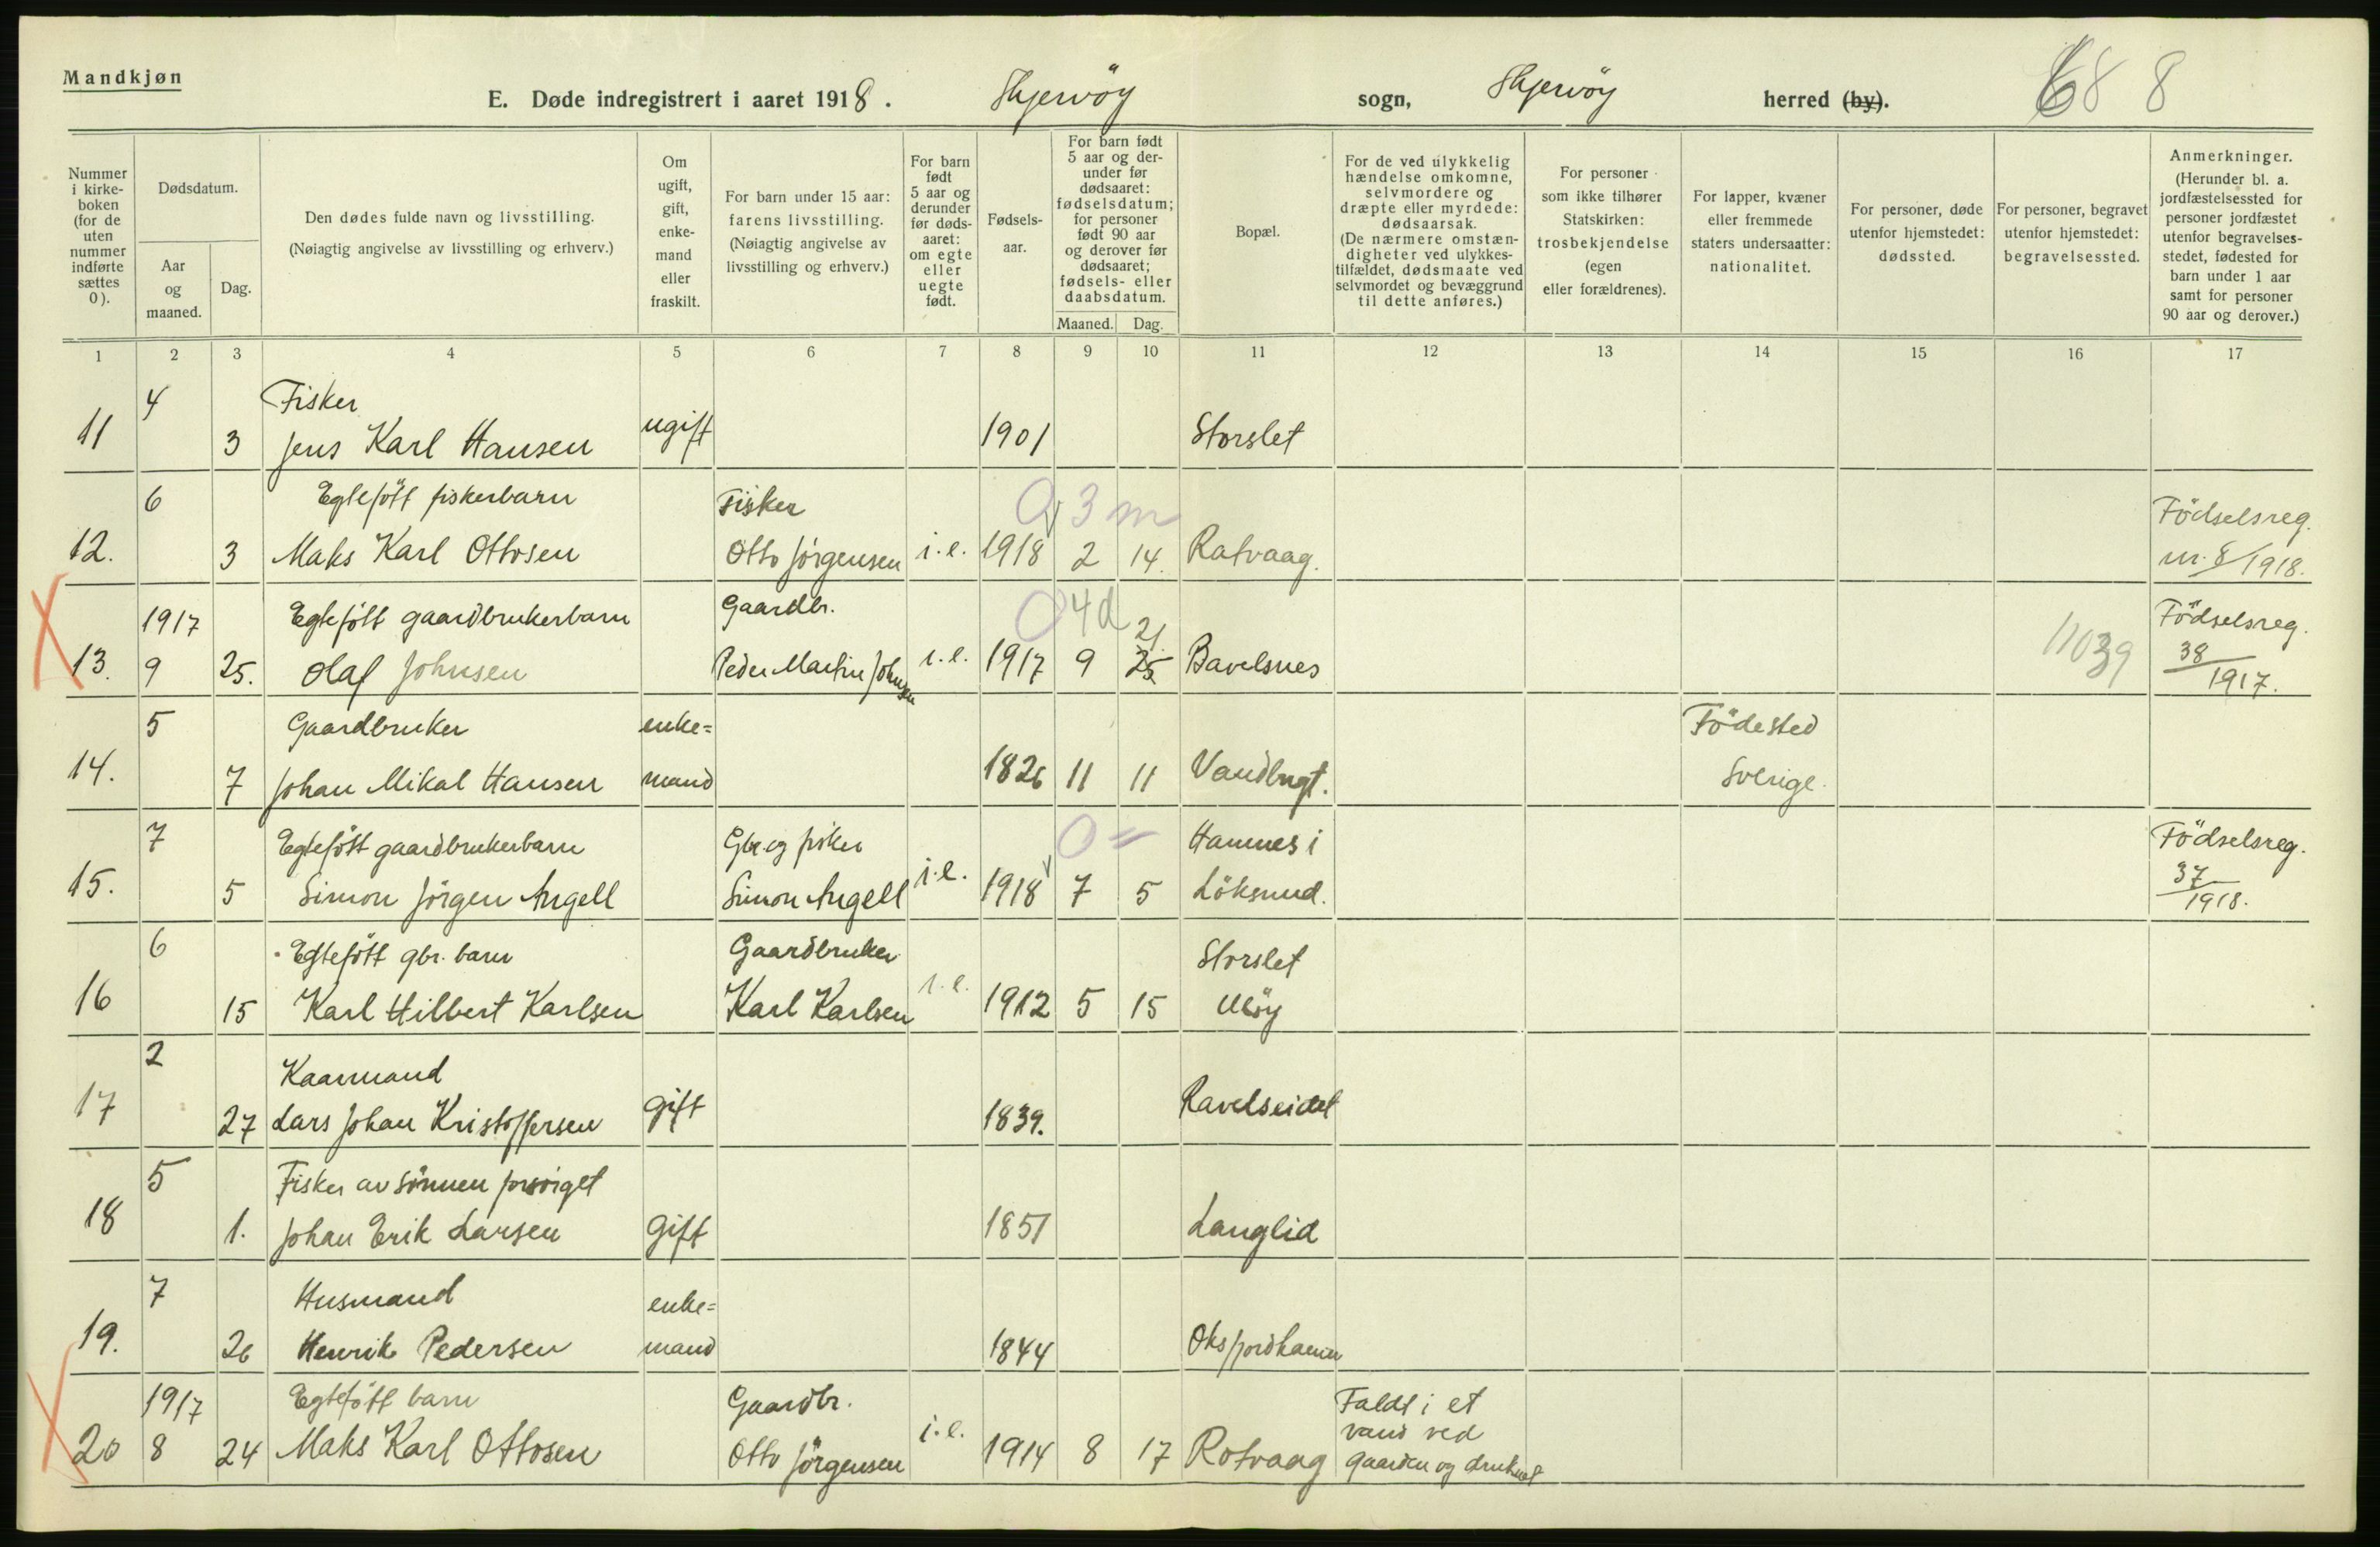 Mandkjøn
E. Døde indregistrert i aaret 1918. Skjervöy sogn, Skjervöy herred (by). 68 8
Nummer i kirke-boken (for de uten nummer indførte sættes 0).
Dødsdatum.
Aar og maaned.
Dag.
Den dødes fulde navn og livsstilling.
(Nøiagtig angivelse av livsstilling og erhverv.)
Om ugift, gift, enke-mand eller fraskilt.
For barn under 15 aar: farens livsstilling. (Nøiagtig angivelse av livsstilling og erhverv.)
For barn født 5 aar og derunder før døds-aaret: om egte eller uegte født.
Fødsels-aar.
For barn født 5 aar og der-under før dødsaaret: fødselsdatum; for personer født 90 aar og derover før dødsaaret; fødsels- eller daabsdatum.
Maaned. Dag.
Bopæl.
For de ved ulykkelig hændelse omkomne, selvmordere og dræpte eller myrdede: dødsaarsak. (De nærmere omstæn-digheter ved ulykkes-tilfældet, dødsmaate ved selvmordet og bevæggrund til dette anføres.)
For personer som ikke tilhører Statskirken: trosbekjendelse (egen eller forældrenes).
For lapper, kvæner eller fremmede staters undersaatter: nationalitet.
For personer, døde utenfor hjemstedet: dødssted.
For personer, begravet utenfor hjemstedet: begravelsessted.
Anmerkninger. (Herunder bl. a. jordfæstelsessted for personer jordfæstet utenfor begravelses-stedet, fødested for barn under 1 aar samt for personer 90 aar og derover.)
1 2 3 4 5 6 7 8 9 10 11 12 13 14 15 16 17
4 Fisker
11 3 Jens Karl Hansen ugift 1901 Storslet
6 Egtefött fiskerbarn Fisker 0 3 m Födselsreg.
12. 3 Maks Karl Ottosen Otto Jörgensen i.e. 1918 2 14. Ratvaag. nr. 8/1918.
1917 Egtefött gaardbrukerbarn Gaardbr. 0 4 d 21. Födselsreg.
13. 9 25. Olaf Johnsen Peder Martin Johnsen i.e. 1917 9 25 Bavelsnes 11039 38/1917.
5 Gaardbruker enke= Födested
14. 7 Johan Mikal Hansen mand 1826 11 11 Vandbugt. Sverige.
7 Egtefött gaardbrukerbarn Gbr. og fisker 0 = Hamnes i Födselsreg.
15. 5 Simon Jörgen Angell Simon Angell i.e. 1918 7 5 Löksund. 37/1918.
6 Egtefött gbr. barn Gaardbruker Storslet
16 15 Karl Hilbert Karlsen Karl Karlsen i.e. 1912 5 15 Ulöy
2 Kaarmand
17 27 Lars Johan Kristoffersen gift 1839. Ravelseidet
5 Fisker av sönnen forsörget
18 1. Johan Erik Larsen gift 1851 Langlid
7 Husmand enke=
19. 26 Henrik Pedersen mand 1844 Oksfjordhamn
1917 Egtefött barn Gaardbr. Faldt i et
vand ved
20 8 24 Maks Karl Ottosen Otto Jörgensen i.e. 1914 8 17 Rotvaag gaarden og druknet